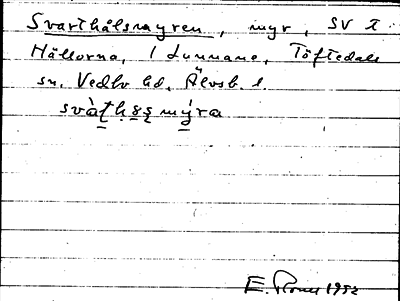 Svarthålsmyren, myr, SV t.
Hällorna, i Lunnane, Töftedals
sn. Vedbo hd. Älvsb. l.
svàt̠h myra
E. 1952